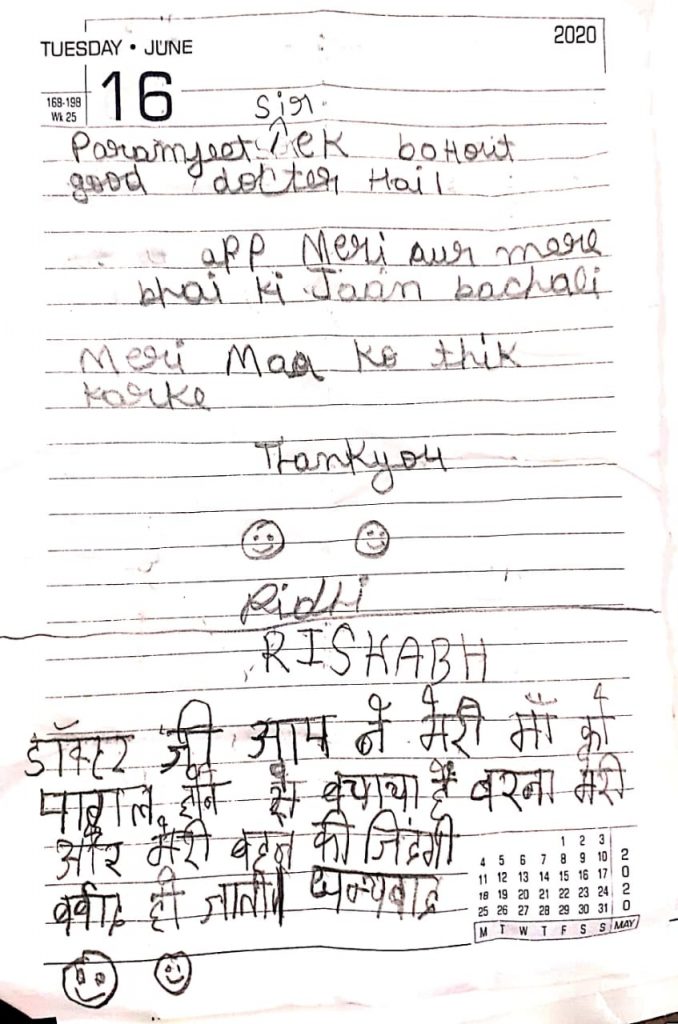 TUESDAY • JUNE
2020
168-198
Wk 25
16
Sir
Paramjeet ek bohout
good docter Hail
app Meri aur mere
bhai ki Jaan bachali
Meri Maa ko thik
karke
Thankyou
Ridhi
RISHABH
डॉक्टर जी आप ने मेरी माँ को
पागल होने से बचाया है वरना मेरी
और मेरी बहन की जिंदगी
बर्बाद हो जाती। धन्यबाद
1 2 3
4 5 6 7 8 9 10
11 12 13 14 15 16 17
18 19 20 21 22 23 24
25 26 27 28 29 30 31
M T W T F S S MAY
2020